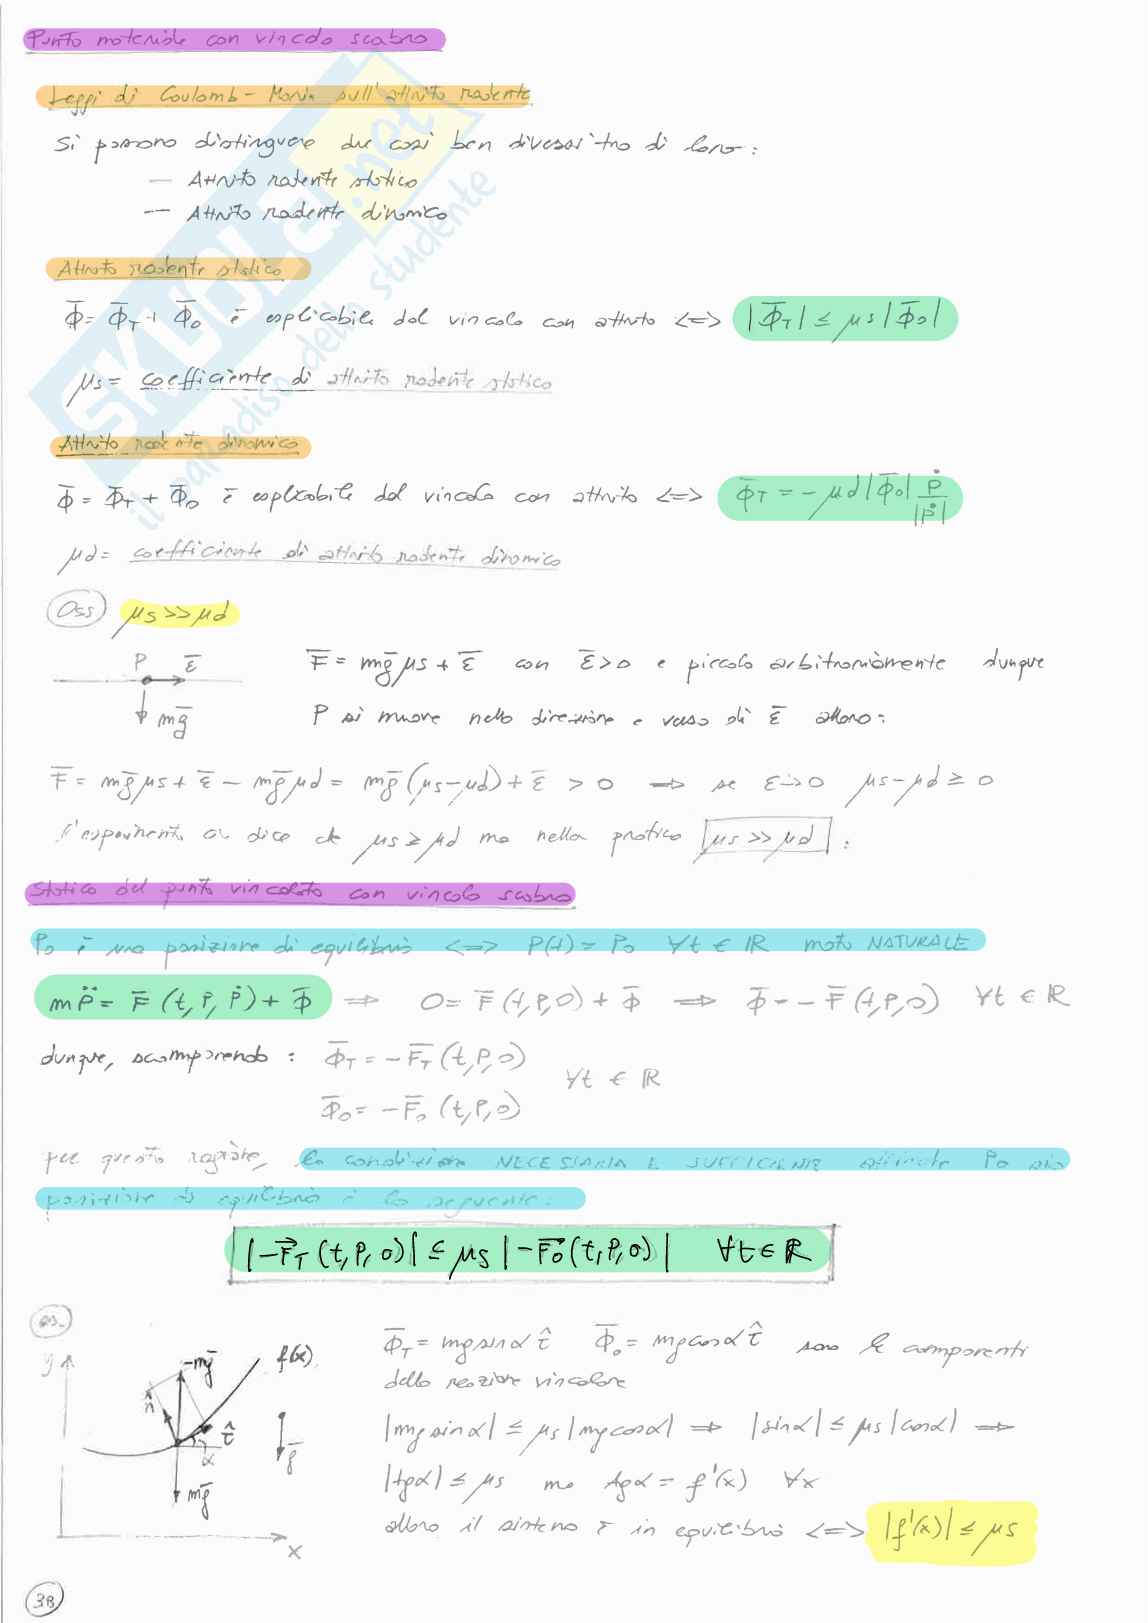 Punto materiale con vincolo scabro
Leggi di Coulomb-Morin sull'attrito radente
Si possono distinguere due casi ben diversi tra di loro:
— Attrito radente statico
— Attrito radente dinamico
Attrito radente statico
Φ̄ = Φ̄_T + Φ̄_0 è esplicabile dal vincolo con attrito <=> |Φ̄_T| ≤ μs |Φ̄_0|
μs = coefficiente di attrito radente statico
Attrito radente dinamico
Φ̄ = Φ̄_T + Φ̄_0 è esplicabile dal vincolo con attrito <=> Φ̄_T = -μd |Φ̄_0| Ṗ/|Ṗ|
μd = coefficiente di attrito radente dinamico
Oss μs >> μd
P ε̄ F̄ = mḡμs + ε̄ con ε̄ > 0 e piccolo arbitrariamente dunque
mḡ P si muove nella direzione e verso di ε̄ allora:
F̄ = mḡμs + ε̄ - mḡμd = mḡ(μs-μd) + ε̄ > 0 => se ε→0 μs-μd ≥ 0
l'esperimento ci dice che μs ≥ μd ma nella pratica μs >> μd .
Statica del punto vincolato con vincolo scabro
Po è una posizione di equilibrio <=> P(t) = Po ∀t ∈ ℝ moto NATURALE
mP̈ = F̄(t,P,Ṗ) + Φ̄ => 0 = F̄(t,P,0) + Φ̄ => Φ̄ = -F̄(t,P,0) ∀t ∈ ℝ
dunque, scomponendo : Φ̄_T = -F̄_T(t,P,0)
∀t ∈ ℝ
Φ̄_0 = -F̄_0(t,P,0)
per questa ragione, la condizione NECESSARIA E SUFFICIENTE affinché Po sia
posizione di equilibrio è la seguente:
|-F⃗_T(t,P,0)| ≤ μs |-F⃗_0(t,P,0)| ∀t ∈ ℝ
es.
y -mḡ f(x) n̂ τ̂ α ḡ mḡ x
Φ̄_T = mg sinα τ̂ Φ̄_0 = mg cosα τ̂ sono le componenti
della reazione vincolare
|mg sinα| ≤ μs |mg cosα| => |sinα| ≤ μs |cosα| =>
|tgα| ≤ μs ma tgα = f'(x) ∀x
allora il sistema è in equilibrio <=> |f'(x)| ≤ μs
38
SKUOLA.net
il paradiso dello studente